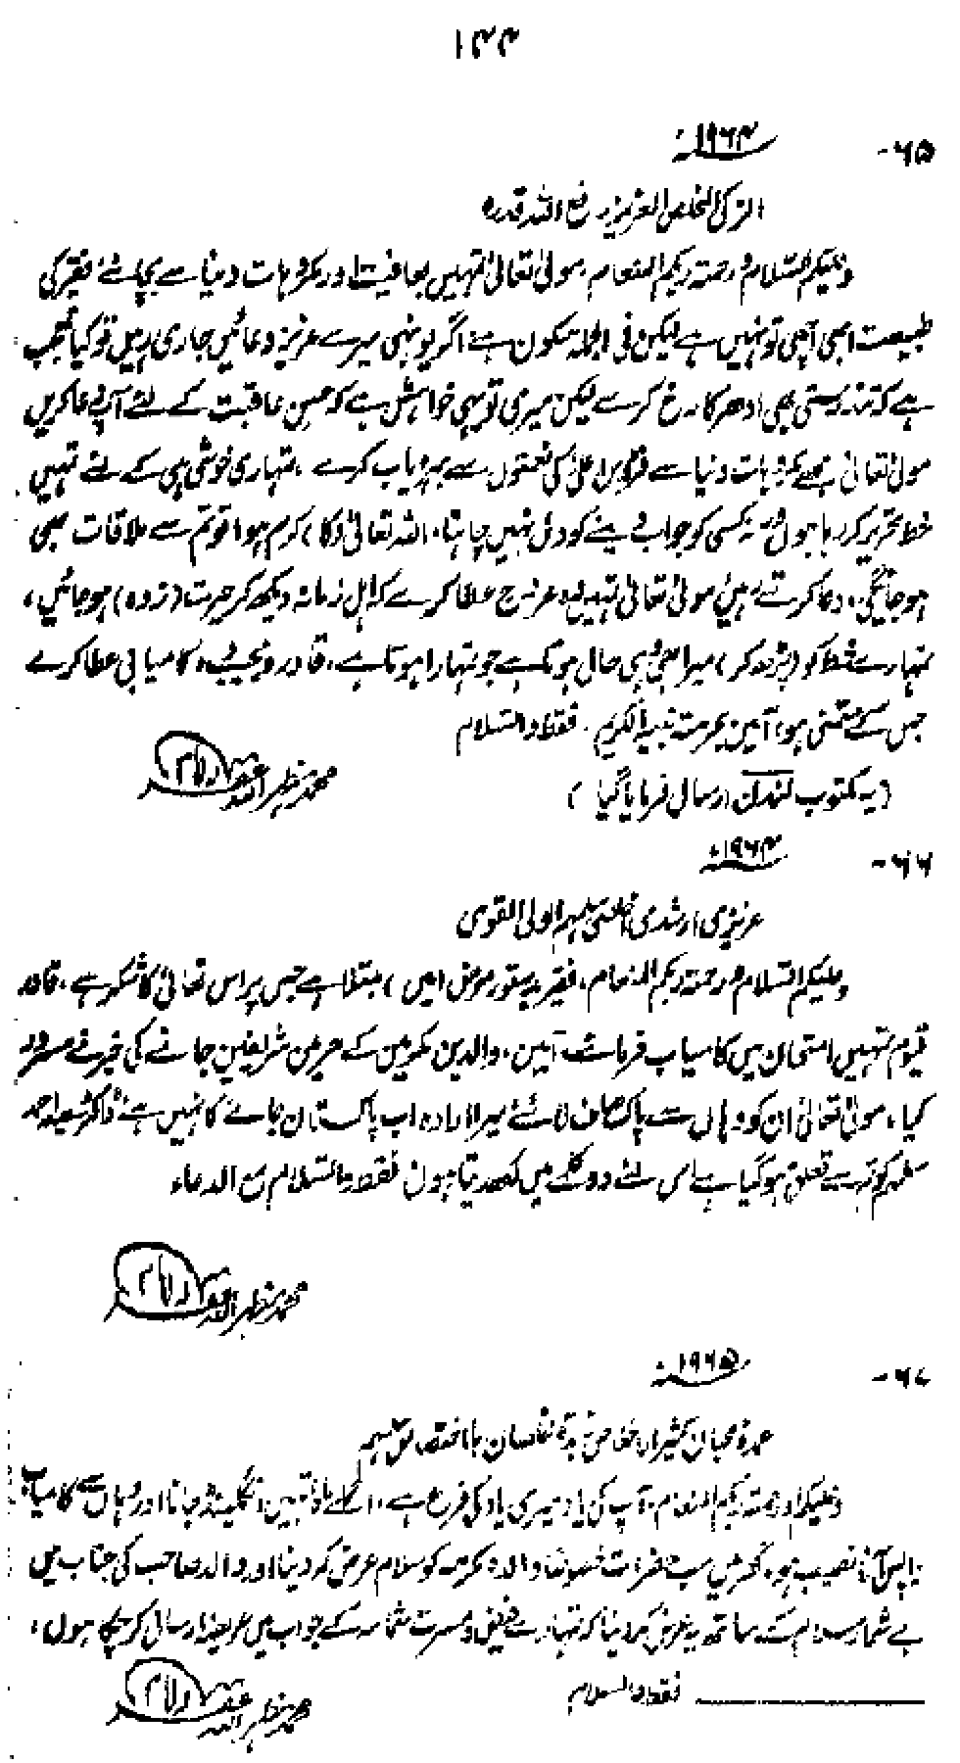 ۱۴۴
۶۵- ۱۹۶۴ء
المخلص العزیز رفع اللہ قدرہ
وعلیکم السلام ورحمۃ ربکم المنعام، مولیٰ تعالیٰ تمہیں بعافیت اور مکروہات دنیا سے بچائے، فقیر کی
طبیعت ابھی اچھی تو نہیں ہے لیکن فی الجملہ سکون ہے اگر یونہی میرے عزیز دعائیں جاری رہیں تو کیا تعجب
ہے کہ تندرستی بھی ادھر کا رخ کرے لیکن میری تو یہی خواہش ہے کہ حسن عاقبت کے لئے آپ دعا کریں
مولیٰ تعالیٰ مجھے مکروہات دنیا سے کی نعمتوں سے بہرہ یاب کرے، تمہاری خوشی ہی کے لئے تمہیں
خط تحریر کر رہا ہوں ورنہ کسی کو جواب دینے کو دل نہیں چاہتا، اللہ تعالیٰ (کا) کرم ہوا تو تم سے ملاقات بھی
ہو جائیگی، دعا کرتے ہیں مولیٰ تعالیٰ تمہیں وہ عروج عطا کرے کہ اہل زمانہ دیکھ کر حیرت (زدہ) ہو جائیں،
تمہارے خط کو (پڑھ کر) میرا بھی وہی حال ہوتا ہے جو تمہارا ہوتا ہے، قادر و مجیب وہ کامیابی عطا کرے
جس کے متمنی ہو، آمین بحرمۃ نبیہ الکریم، فقط والسلام
محمد مظہر اللہ عفی
(یہ مکتوب لندن ارسال فرمایا گیا)
۶۶- ۱۹۶۴ء
عزیزی ارشدی سلمہم الولی القوی
وعلیکم السلام ورحمۃ ربکم المنعام، فقیر بدستور مرض (میں) مبتلا ہے جس پر اس تعالیٰ کا شکر ہے، قادر
قیوم تمہیں امتحان میں کامیاب فرمائے آمین، والدین مکرمین کے حرمین شریفین جانے کی خبر نے مسرور
کیا، مولیٰ تعالیٰ ان کو وہاں سے پاکستان لائے میرا ارادہ اب پاکستان جانے کا نہیں ہے، ڈاکٹر سعید احمد
سلمہم کو تم سے تعلق ہو گیا ہے اس لئے دو کلمے میں لکھ دیتا ہوں فقط والسلام مع الدعاء
محمد مظہر اللہ
۶۷- ۱۹۶۵ء
عمدہ محبان
وعلیکم ورحمۃ ربکم المنعام، آپ کی یاد میری یاد کی فرع ہے، تمہیں انگلینڈ جانا اور وہاں سے کامیاب
واپس آنا نصیب ہو، گھر میں سب حضرات خصوصاً والدہ مکرمہ کو سلام عرض کر دینا اور والد صاحب کی جناب میں
بے شمار سلام کے ساتھ یہ عرض کر دینا کہ تمہارے مسرت شمامہ کے جواب میں عریضہ ارسال کر چکا ہوں،
فقط والسلام
محمد مظہر اللہ عفی